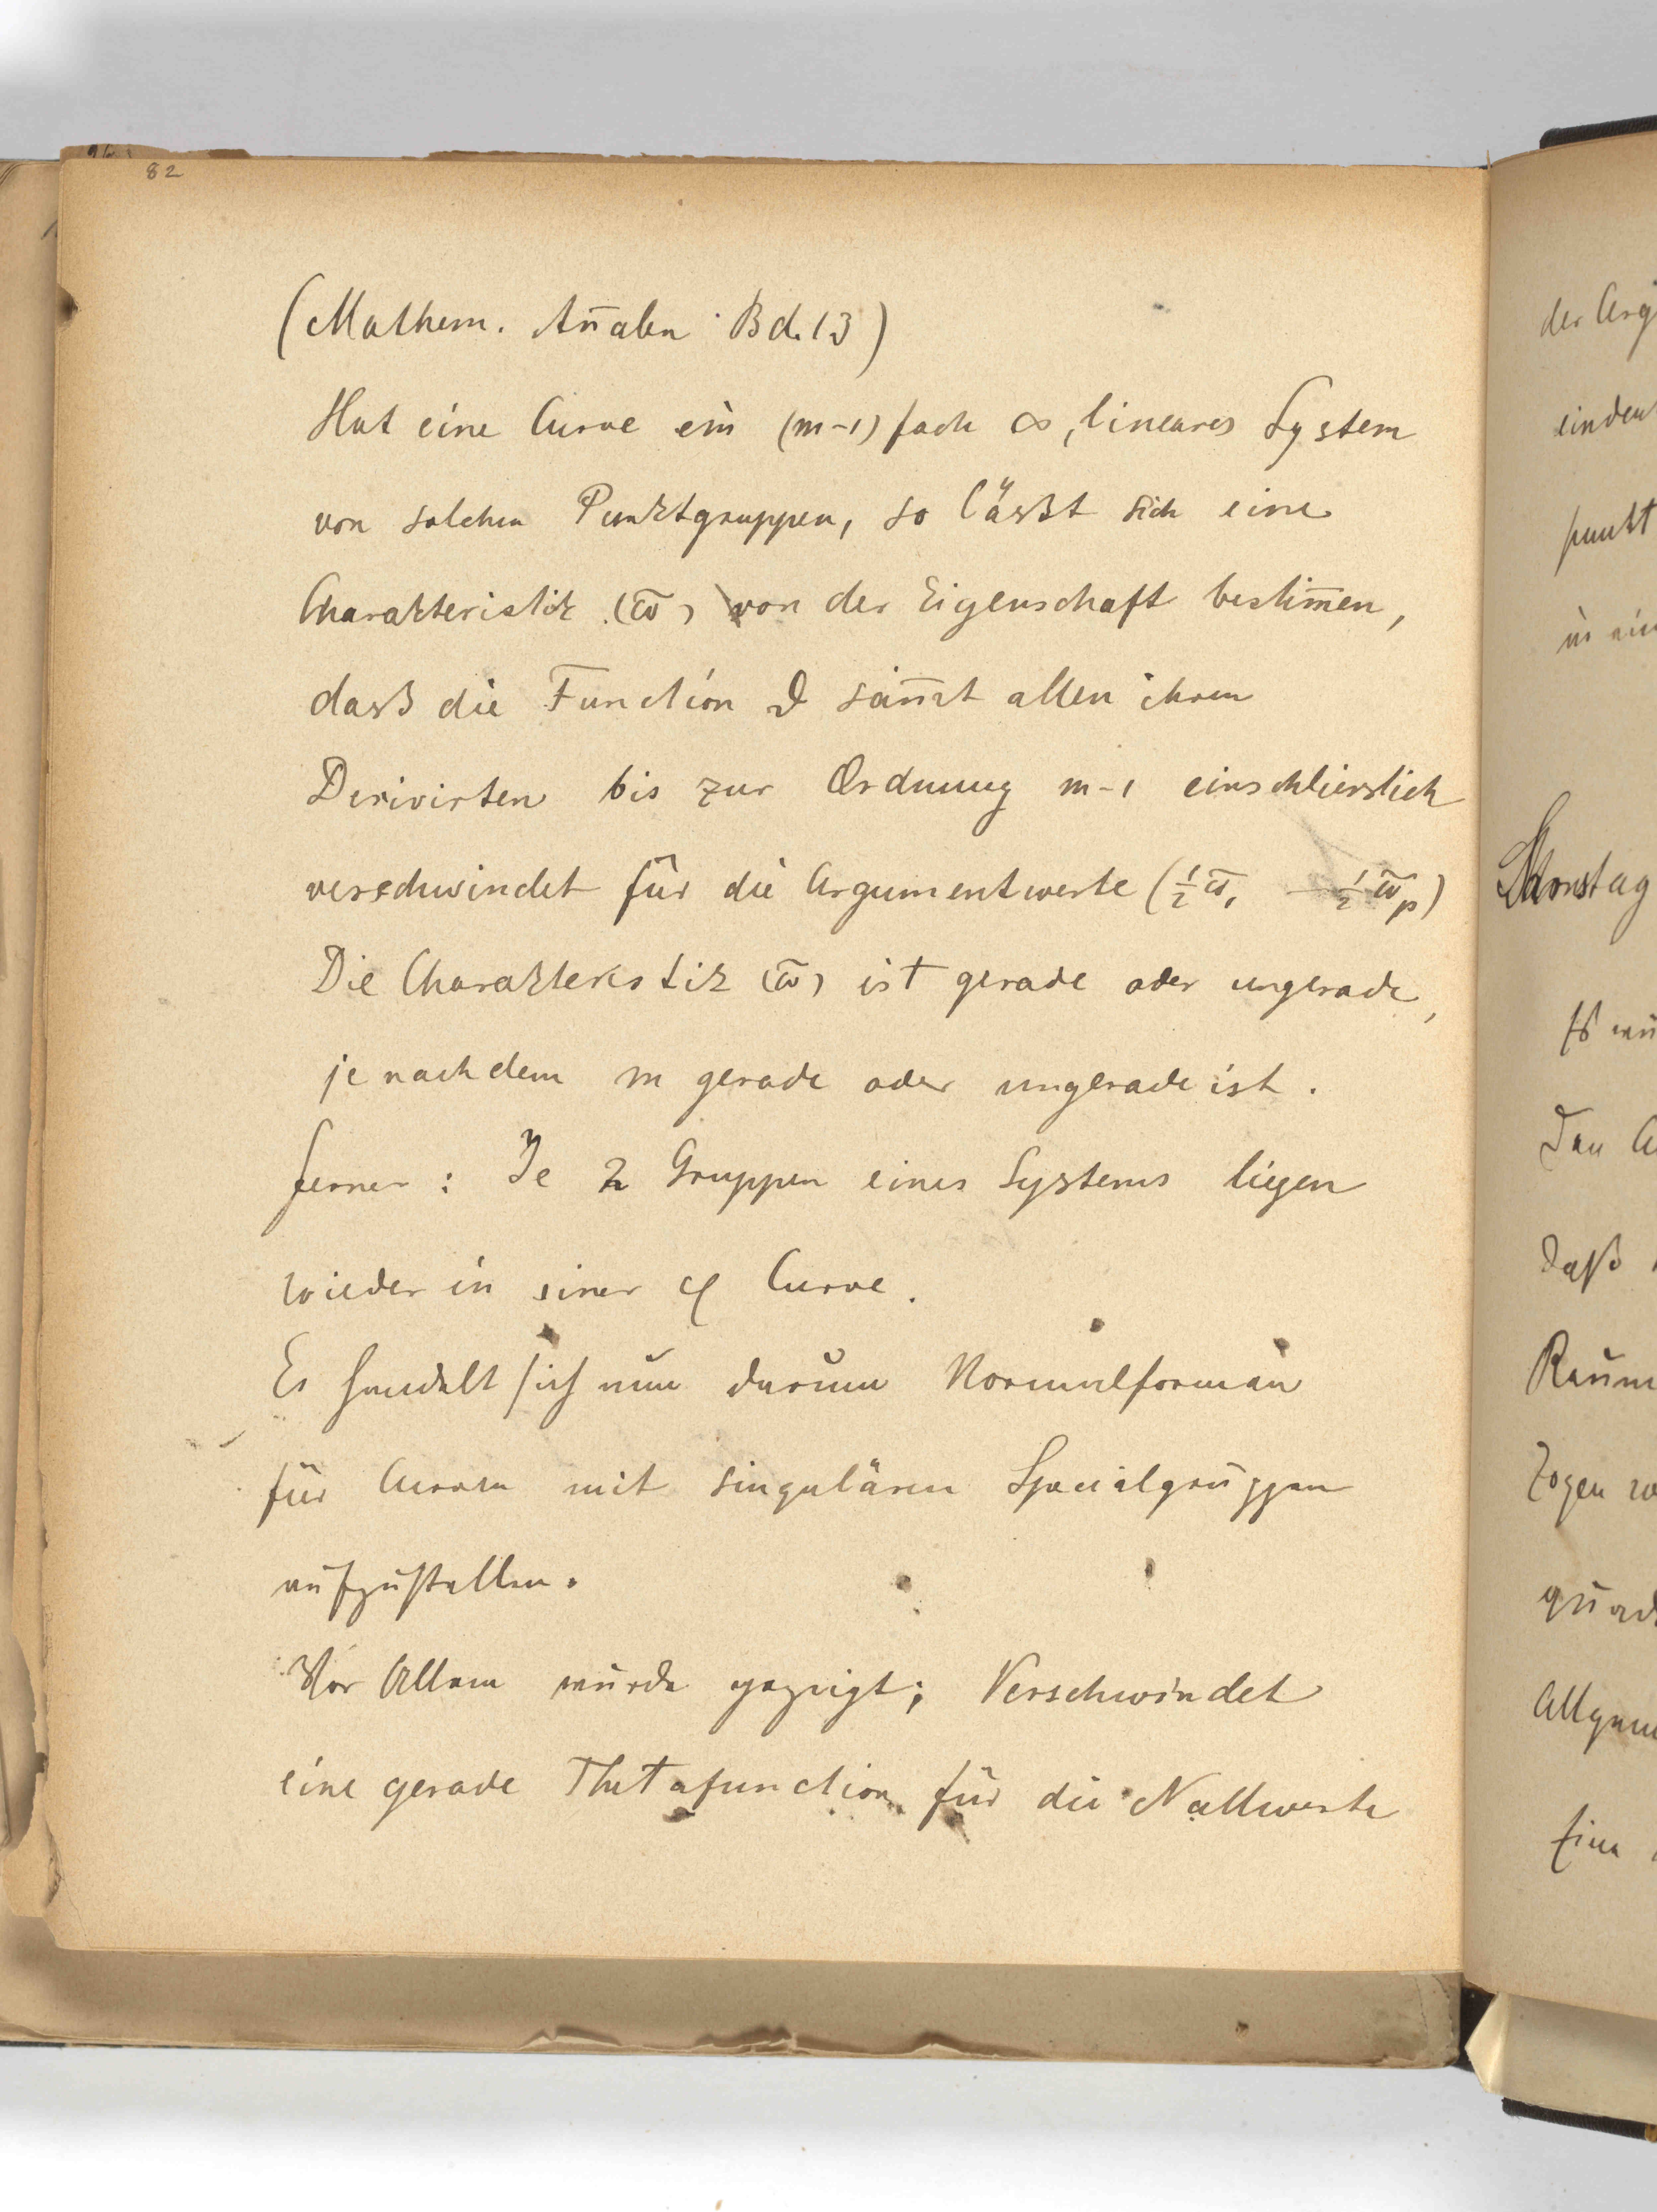 82
(Mathem. An̄alen Bd. 13)
Hat eine Curve ein (m-1) fach ∞, lineares System
von solchen Punktgruppen, so lässt sich eine
Charakteristik (ω̄) von der Eigenschaft bestim̄en,
dass die Function ϑ sam̄t allen ihren
Derivirten bis zur Ordnung m-1 einschliesslich
verschwindet für die Argumentwerte (½ω̄, — ½ω̄p)
Die Charakteristik (ω̄) ist gerade oder ungerade,
je nachdem m gerade oder ungerade ist.
ferner: Je 2 Gruppen eines Systems liegen
wieder in einer φ Curve.
Es handelt sich nun darum Normalformen
für Curven mit singulären Specialgruppen
aufzustellen.
Vor Allem wurde gezeigt; Verschwindet
eine gerade Thetafunction für die Nullwerte
der Arg
einden
punkt
in ein
Samstag
Es wu
Den A
daß
Raum
zogen
quad
Allgem
Eine